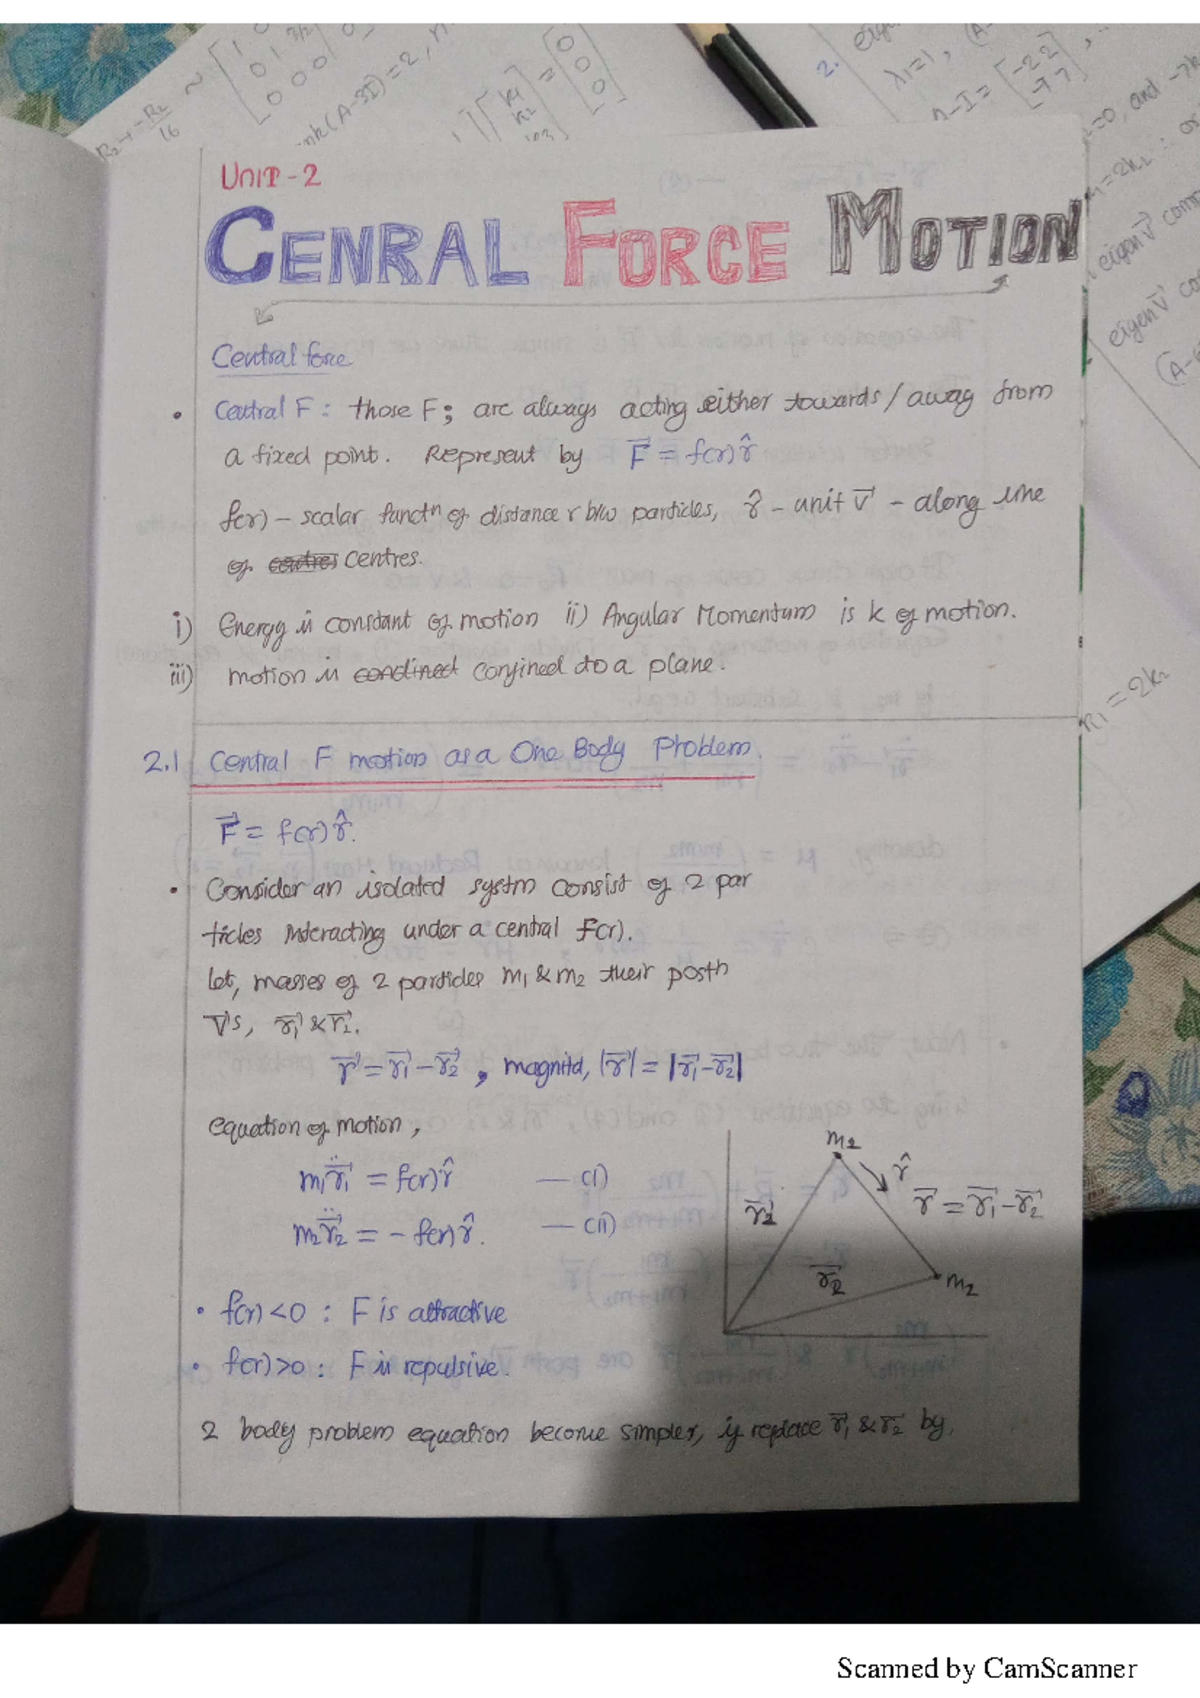 R2 → -R2/16 ~ [1 0 3/2
0 1
0 0 0]
(A-3I)=2,
[k1
k2] = [0
0
0]
2.
λ1=1, (A-
-I = [-2 2
-7 7]
=0, and -7k
=2k2
eigen V⃗
eigen V⃗
(A-
R1=2k2
UNIT-2
CENRAL FORCE MOTION
Central force
• Central F : those F; are always acting either towards/away from
a fixed point. Represent by F⃗ = f(r) r̂
f(r) – scalar functn of distance r b/w particles, r̂ – unit V⃗ – along line
of centres centres.
i) Energy is constant of motion ii) Angular Momentum is k of motion.
iii) motion is condined confined to a plane.
2.1 Central F motion as a One Body Problem.
F⃗ = f(r) r̂.
• Consider an isolated systm consist of 2 par
ticles interacting under a central F(r).
let, masses of 2 particles m1 & m2 their postn
V⃗s, r⃗1 & r⃗2.
r⃗ = r⃗1 – r⃗2 , magnitd, |r⃗| = |r⃗1 – r⃗2|
equation of motion ,
m1r̈⃗1 = f(r) r̂ — (i)
m2r̈⃗2 = – f(r) r̂. — (ii)
m2
r̂
r⃗2
r⃗ = r⃗1 – r⃗2
r⃗2
m2
• f(r) <0 : F is attractive
• f(r) >0 : F is repulsive.
2 body problem equation become simpler, if replace r⃗1 & r⃗2 by,
Scanned by CamScanner